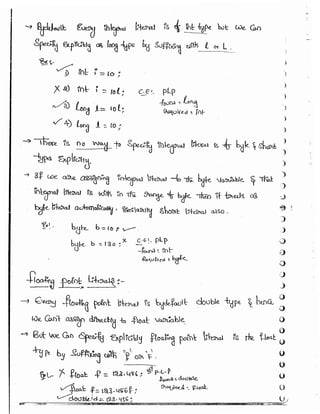 → Bydefault Every Integral literal is of int type but we can
Specify Explicitly as long type by Suffixing with l or L.
Ex:-
✓ 1) int i = 10;
X 2) int i = 10l; C.E:- PLP
found : long
required : int
✓ 3) long l = 10l;
✓ 4) long l = 10;
→ There is no way to Specify Integral literal is of byte & Short
type Explicitly.
→ If we are assigning Integral literal to the byte variable & that
Integral literal is with in the range of byte then it treats as
byte literal automatically. Similarly Short literal also.
Ex: byte b = 10; ✓
byte b = 130; X C.E:- PLP
found : int
Required : byte.
Floating point literals :-
→ Every floating point literal is bydefault double type & hence
we Can't assign directly to float variable.
→ But we Can Specify Explicitly floating point literal is the float
type by Suffixing with 'f' or 'F'.
Ex:- X float f = 123.456; PLP
found : double
✓ float f = 123.456f; Required : float.
✓ double d = 123.456;